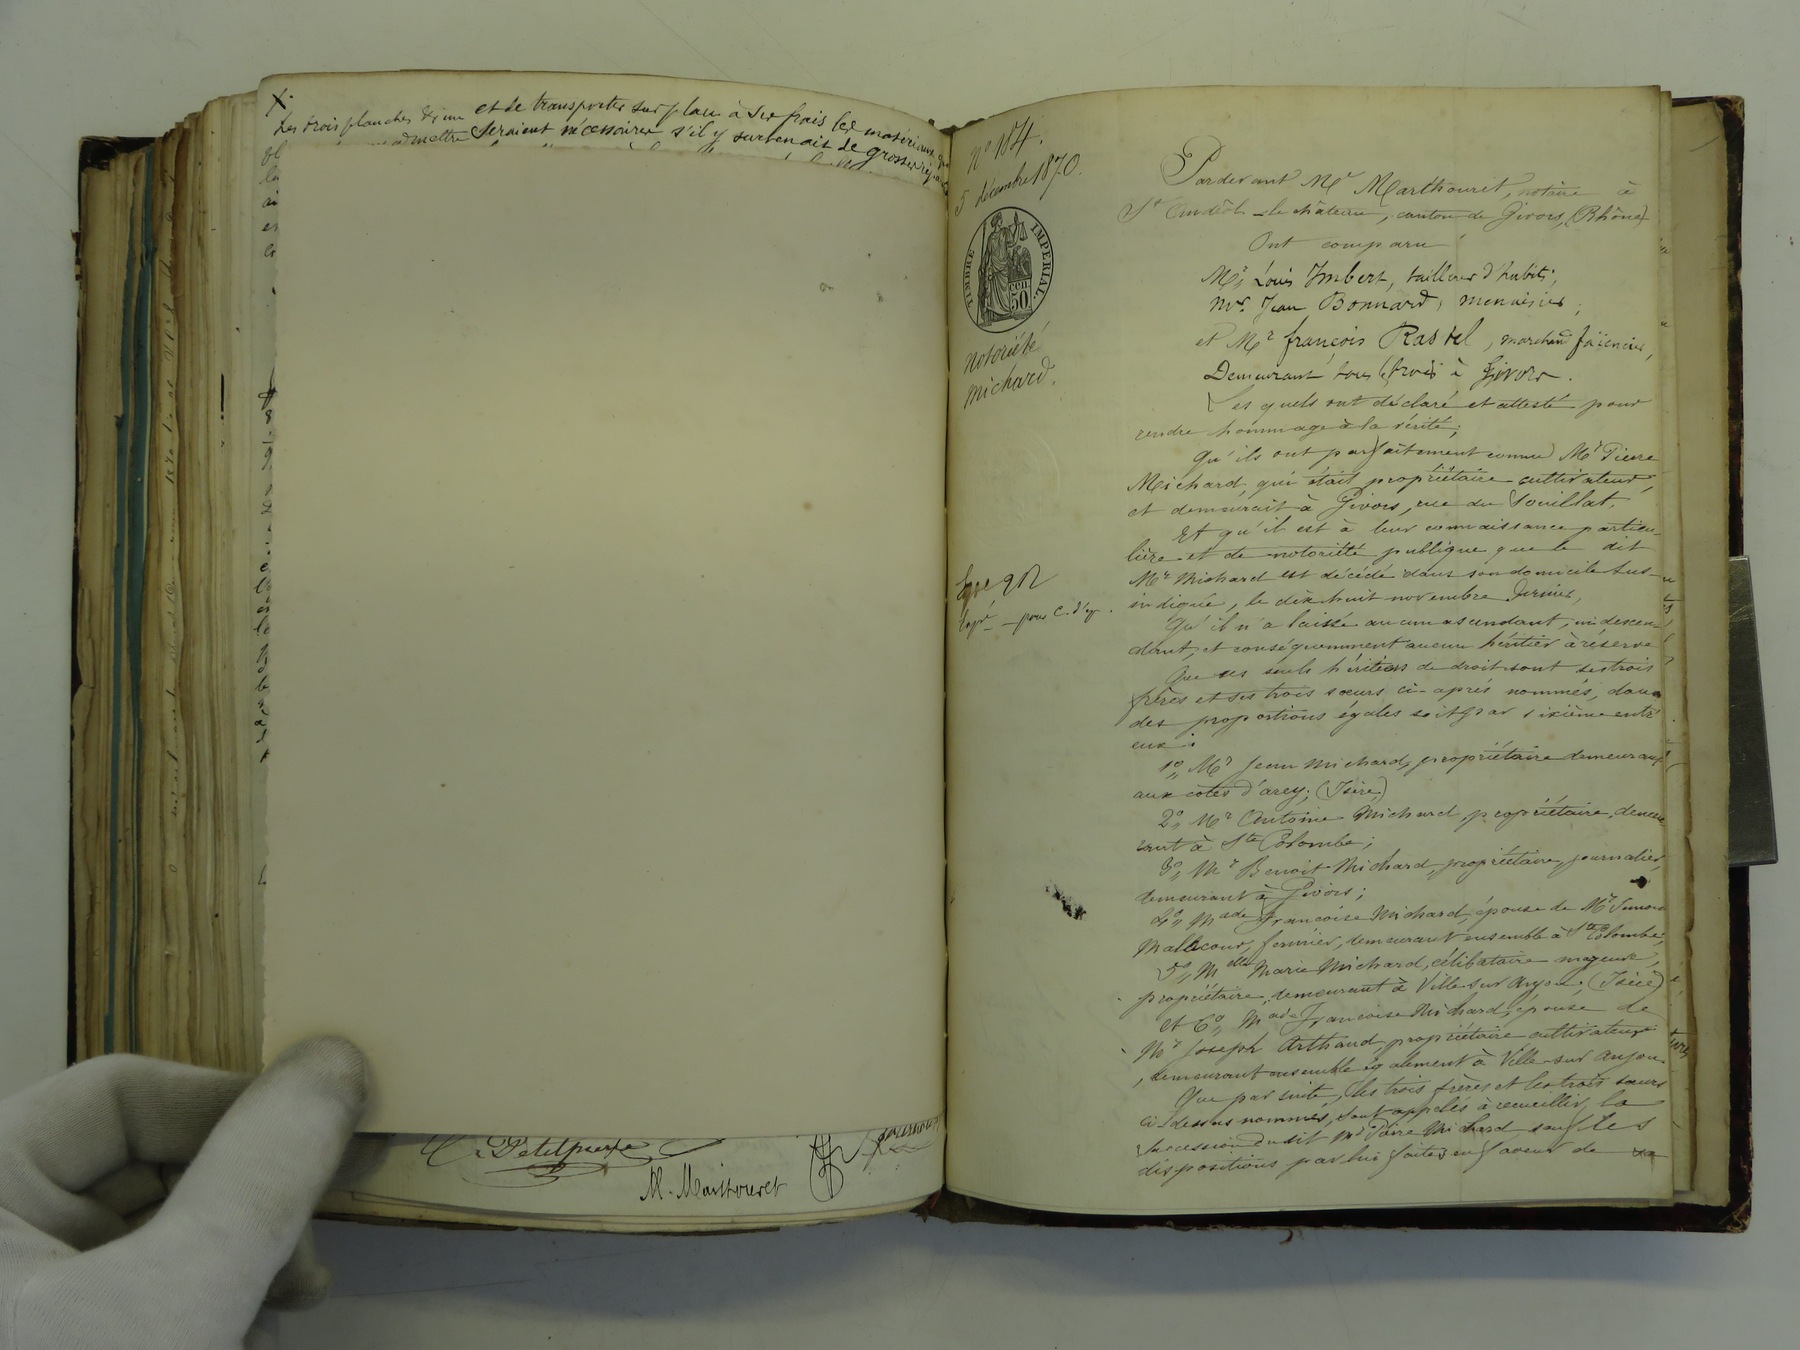 X.
Les trois planches
et de transporter sur place à ses frais les matériaux
seraient nécessaires s'il y survenait de grosses
C. Petitpierre
M. Marthouret
N° 104.
5 décembre 1870.
TIMBRE IMPERIAL.
50 cen
Notoriété
Michard.
Expé – pour C. d'hyp.
Pardevant Me Marthouret, notaire à
St Andéol-le-château, canton de Givors, (Rhône)
Ont comparu
Mr. Louis Imbert, tailleur d'habits;
Mr. Jean Bonnard, menuisier;
et Mr françois Rastel, marchand faïencier,
Demeurant tous trois à Givors.
Les quels ont déclaré et attesté pour
rendre hommage à la vérité;
Qu'ils ont parfaitement connu Mr Pierre
Michard, qui était propriétaire cultivateur,
et demeurait à Givors, rue du Souillat,
Et qu'il est à leur connaissance particu-
lière et de notoriété publique que le dit
Mr Michard est décédé dans son domicile sus-
indiqué, le dix huit novembre dernier,
Qu'il n'a laissé aucun ascendant, ni descen-
dant, et conséquemment aucun héritier à réserve
Que ses seuls héritiers de droit sont ses trois
frères et ses trois sœurs ci-après nommés, dans
des proportions égales soit par sixième entr'
eux :
1° Mr Jean Michard, propriétaire demeurant
aux cotes d'arey; (Isère)
2° Mr Antoine Michard, propriétaire, demeu-
rant à Ste Colombe;
3° Mr Benoit Michard, propriétaire, journalier,
demeurant à Givors;
4° Made Françoise Michard, épouse de Mr Simon
Mallecour, fermier, demeurant ensemble à Ste Colombe,
5° Melle Marie Michard, célibataire majeure,
propriétaire, demeurant à Ville sur Anjou, (Isère)
et 6° Made Francoise Michard, épouse de
Mr Joseph Arthaud, propriétaire cultivateur
, demeurant ensemble également à Ville-sur Anjou
Que par suite, les trois frères et les trois sœurs
ci-dessus nommés, sont appelés à recueillir la
succession du dit Mr Pierre Michard sauf les
dispositions par lui faites en faveur de